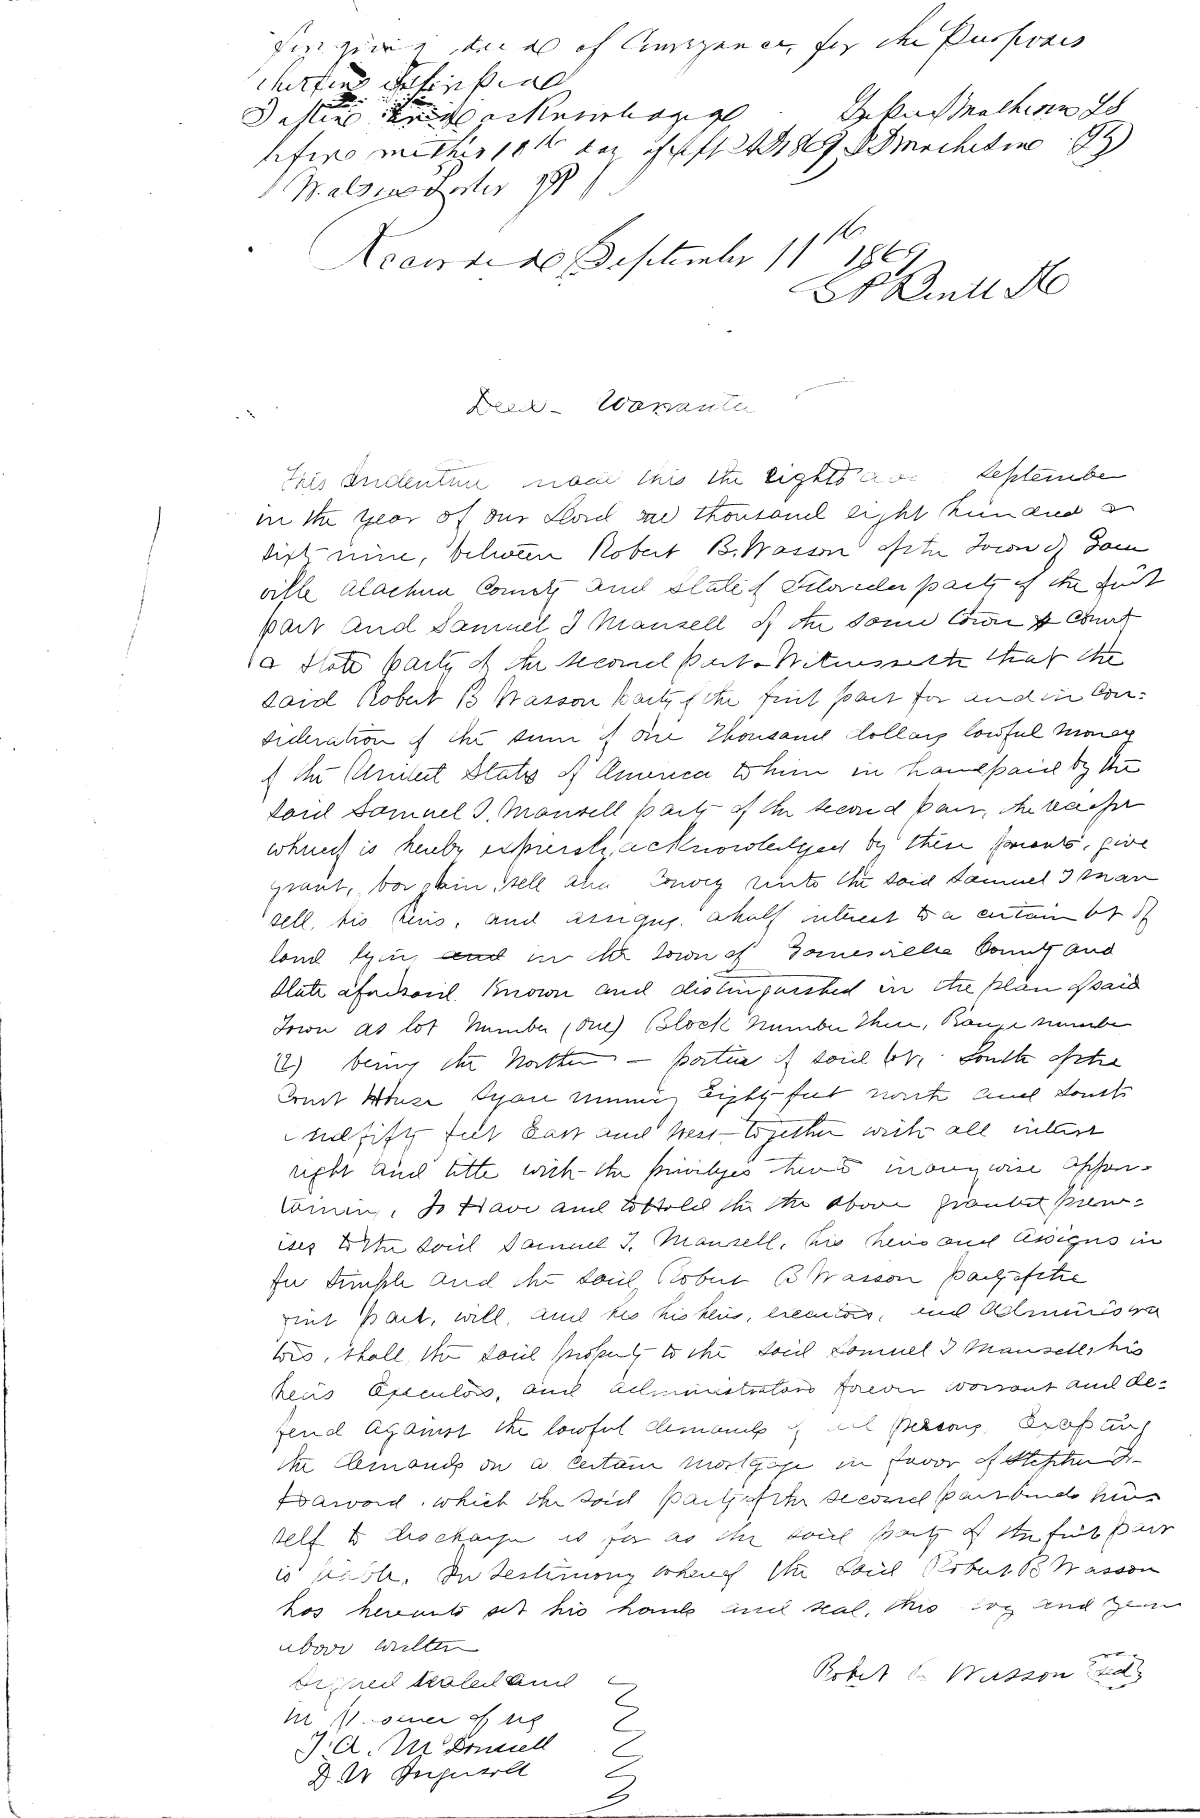 deed of Conveyance, for the Purposes
therein
acknowledged
before me this 10th day of Sept AD 1869
Recorded September 11th 1869
Deed - Warrantee
This Indenture made this the eight day September
in the year of our Lord one thousand eight hundred &
sixt nine, between Robert B. Wasson of the Town of Gain
ville Alachua County and State of Florida party of the first
part and Samuel J Mansell of the same town & County
& State party of the second part. Witnesseth that the
said Robert B Wasson party of the first part for and in Con:
sideration of the sum of one thousand dollars lawful money
of the United States of America to him in hand paid by the
said Samuel J. Mansell party of the second part, the receipt
whereof is hereby expressly acknowledged by these presents, give
grant, bargain, sell and Convey unto the said Samuel J Man
sell, his heirs, and assigns. a half interest to a certain lot of
land lying and in the Town of Gainesville County and
State aforesaid. Known and distinguished in the plan of said
Town as lot Number (One) Block Number Three, Range number
(2) being the Northern - portion of said lot, South of the
Court House Sqare running Eighty feet north and South
and fifty feet East and West - together with all interest
right and title with the privileges thereto in anywise apper-
taining. To Have and to Hold the the above granted prem-
ises to the said Samuel J. Mansell, his heirs and Assigns in
fee Simple and the said Robert B Wasson party of the
first part, will, and his heirs, executors, and Administra
tors, shall, the said property to the said Samuel J Mansell, his
heirs Executors, and administrators forever warrant and de-
fend Against the lawful demands of all persons, Excepting
the demands on a certain mortgage in favor of Stephen
Harword. which the said party of the second part binds him-
self to discharge so far as the said party of the first part
is liable. In testimony whereof the Said Robert B Wasson
has hereunto set his hand and seal, this day and year
above written
Signed sealed and
in presence of us
J. A. McDonnell
D W Ingersoll
Robert B Wasson Seal